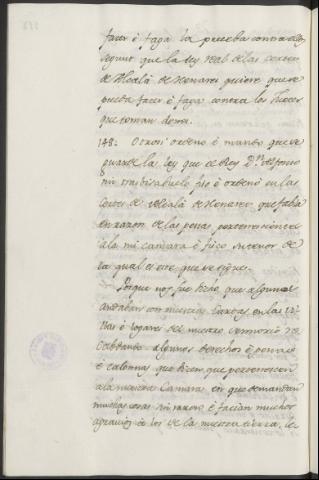 facer é faga la prueba contra ellos
segunt que la ley real de las cortes
de Alcalá de Henares quiere que se
pueda facer é faga contra los Jueces
que toman dones.
148. Otrosi ordeno é mando que se
guarde la ley que el Rey Dn. Alfonso
mi trasbisabuelo fiso é ordenó en las
Cortes de Alcalá de Henares, que fabla
en razon de las penas pertenescientes
á la mi camara é fisco su tenor de
la qual es este que se sigue.
Porque nos fue dicho, que algunos
andaban con nuestras cartas en las ci-
bdades é logares del nuestro sennorio re-
cabdando algunos derechos é penas
é calonnas, que dicen que pertenescen
á la nuestra Camara en que demandan
muchas cosas sin razon é facian muchos
agravios á los de la nuestra tierra, lo